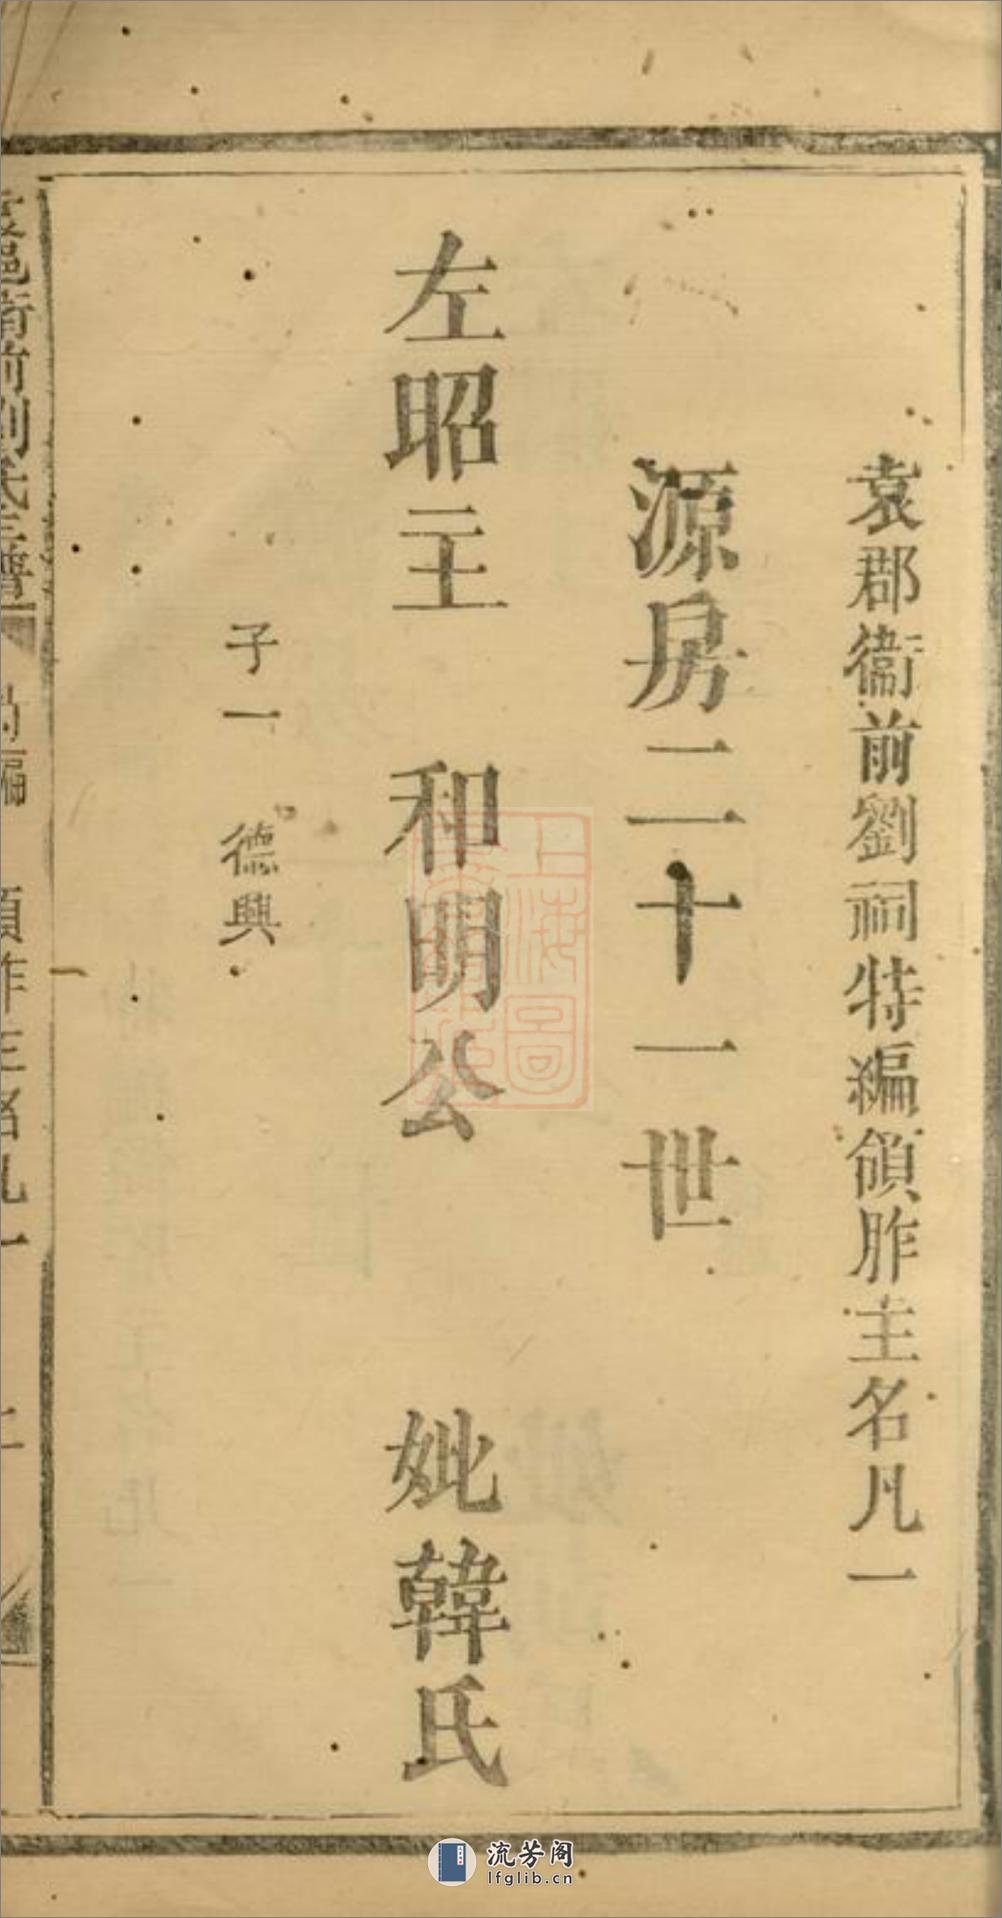 袁郡衞前劉祠特編領胙主名凡一
源房二十一世
左昭主 和明公 妣韓氏
子一 德興
邑衞前劉氏宗譜 編 領胙主名凡一 二
上海圖
流芳阁
lfglib.cn